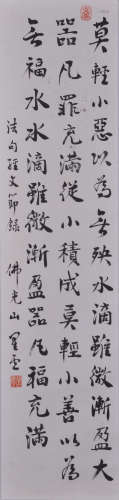 莫輕小惡以為無殃水滴雖微漸盈大
器凡罪充滿從小積成莫輕小善以為
無福水水滴雖微漸盈器凡福充滿
法句經文節錄 佛光山 星雲